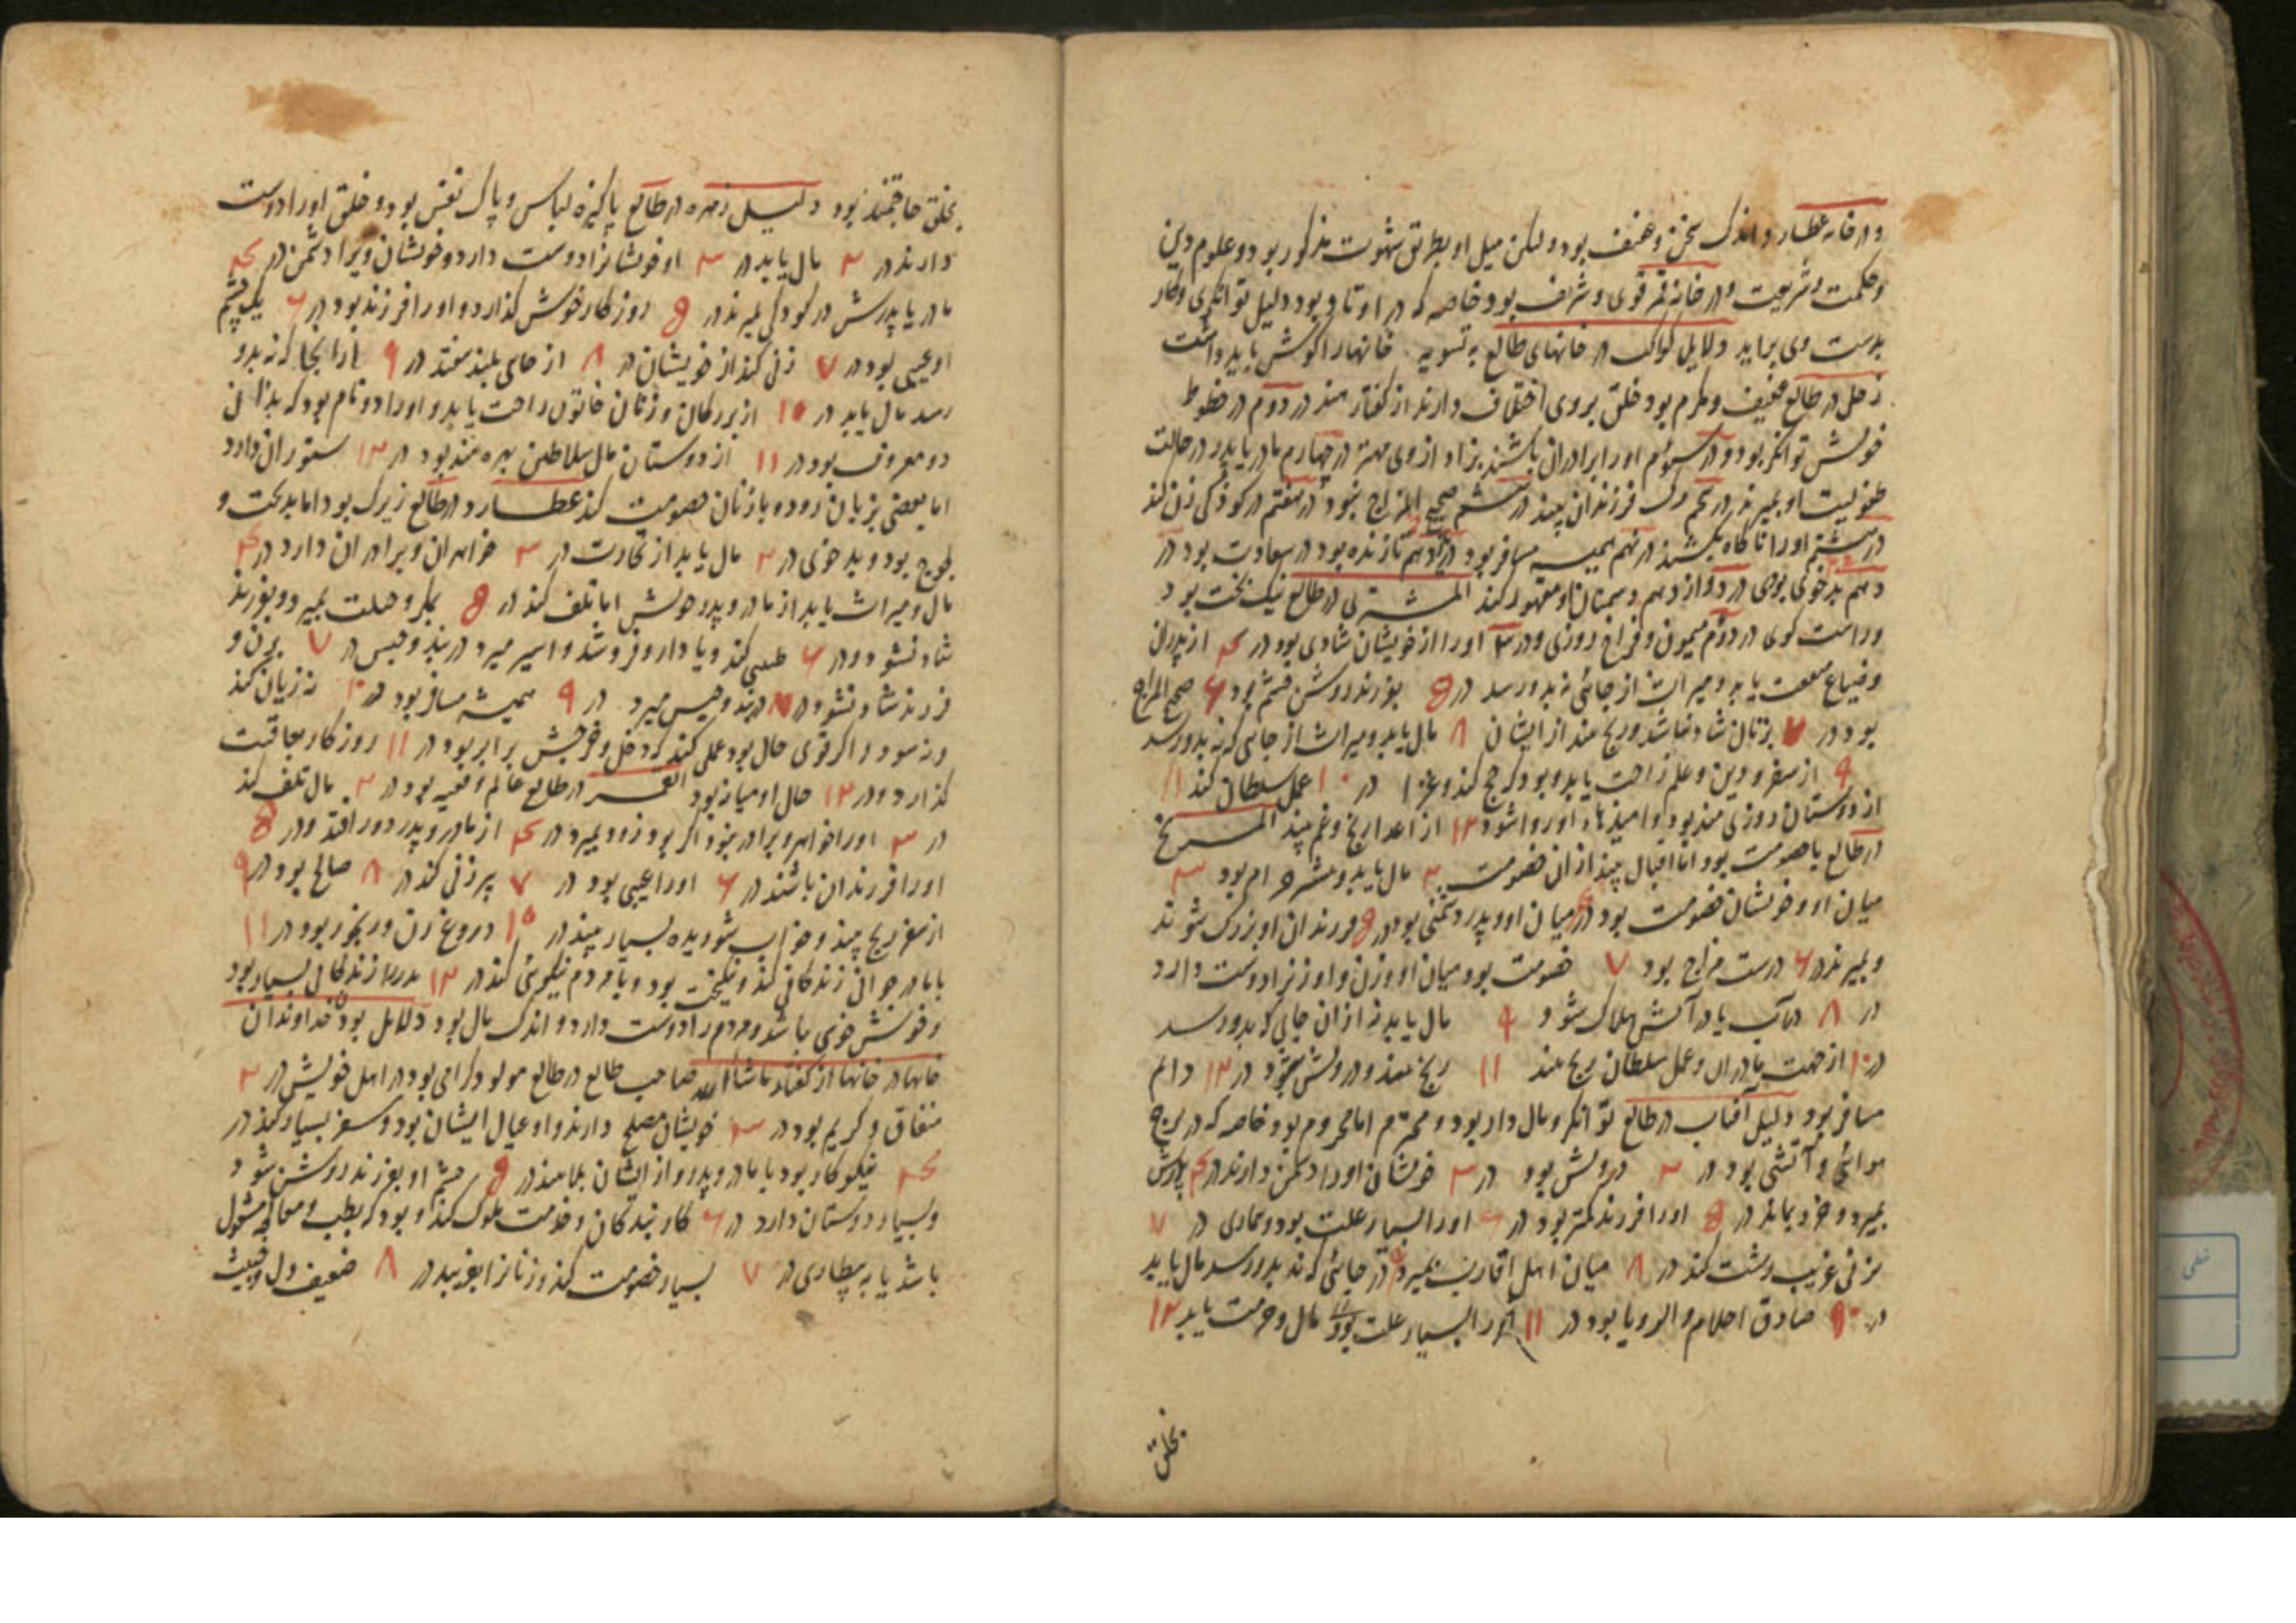 و در خانه عطارد اندک سخن و عفیف بود و لکن میل او بطریق شهوت مذکور بود و علوم دین
و حکمت و شریعت و در خانه قمر قوی و شریف بود خاصه که در اوتاد بود دلیل توانگری و کار
بدست وی براید دلایل کواکب در خانهای طالع به تسویه خانهارا گوش باید داشت
زحل در طالع عفیف و مکرم بود خلق بروی اختلاف دارند از گفتار هند در دوم در خطوط
خویش توانگر بود و در سوم اورا برادران باشند بزاد از وی مهتر در چهارم مادر یا پدر در حالت
طفولیت او بمیرند در پنجم مرگ فرزندان بیند در ششم صحیح المزاج نبود در هفتم در کودکی زن کند
در هشتم اورا ناگاه بکشند در نهم همیشه مسافر بود در یازدهم تا زنده بود در سعادت بود در
دهم بدخوئی بودی در دوازدهم دشمنان او مقهور کند المشتری در طالع نیک بخت بود
و راست گوی در دوم میمون و فراخ روزی و در ۳ اورا از خویشان شادی بود در ۴ از پدران
و ضیاع منفعت یابد و میراث از جائی نه بدو رسد در 8 بفرزند روشن چشم بود ۶ صحیح المزاج
بود در ۷ بزنان شاد نباشد و رنج بیند از ایشان ۸ مال یابد و میراث از جایی که نه بدو رسد
۹ از سفر و دین و علم راحت یابد و بود که حج کند و غزا در ۱۰ عمل سلطان کند ۱۱
از دوستان روزی مند بود و امیدهاء او روا شود ۱۲ از اعدا رنج و غم بیند المریخ
در طالع با خصومت بود اما اقبال بیند از ان خصومت ۲ مال یابد و بود ۳
میان او و خویشان خصومت بود در ۴ میان او و پدر دشمنی بود در 8 فرزندان او بزرگ شوند
و بمیرند در ۶ درست مزاج بود ۷ خصومت بود میان او و زن و او زنرا دوست دارد
در ۸ در آب یا در آتش هلاک شود ۹ مال یابد نه از ان جایی که بدو رسد
در ۱۰ از جهت مادران و عمل سلطان رنج بیند ۱۱ رنج و درویش بود در ۱۲ دایم
مسافر بود دلیل آفتاب در طالع توانگر و مال دار بود و محترم اما محروم بود خاصه که در برج
هوائی و آتشی بود در ۲ درویش بود در ۳ خویشان اورا دشمن دارند در ۴ پدرش
بمیرد و خرد بماند در 8 اورا فرزند کمتر بود در ۶ اورا بسیار علت بود و بیماری در ۷
بزنی غریب رشت کند در ۸ میان اهل اقارب بمیرد ۹ در جائی که نه بدو رسد مال یابد
در ۱۰ صادق احلام و الرویا بود در ۱۱ بسیار علت بود مال و حرمت یابد ۱۲
بخلق
بخلق حاجتمند بود دلیل زهره در طالع پاکیزه لباس و پاک نفس بود و خلق اورا دوست
دارند در ۲ مال یابد در ۳ او خویشانرا دوست دارد و خویشان ویرا دشمن در ۴
مادر یا پدرش در کودکی بمیرند در 8 روزگار خوش گذارد و اورا فرزند بود در ۶ یک چشم
او عیبی بود در ۷ زنی کند از خویشان در ۸ از جای بلند بیفتد در ۹ از انجا که نه بدو
رسد مال یابد در ۱۰ از بزرگان و زنان خاتون راحت یابد و اورا دو نام بود که بدان
دو معروف بود در ۱۱ از دوستان مال سلاطین بهره مند بود در ۱۲ ستوران دارد
اما بعضی بزیان رود و با زنان خصومت کند عطارد در طالع زیرک بود اما بدبخت و
لجوج بود و بدخوی در ۲ مال یابد از تجارت در ۳ خواهران و برادران دارد در ۴
مال و میراث یابد از مادر و پدر خویش اما تلف کند در 8 بمکر و حیلت بمیرد و بفرزند
شاد نشود و در ۶ طبیبی کند و یا دارو فروشد و اسیر میرد در بند و حبس در ۷ بزن و
فرزند شاد نشود در ۸ در بند و حبس میرد در ۹ همیشه مسافر بود در ۱۰ نه زیان کند
و نه سود و اگر قوی حال بود عملی کند که دخل و خرجش برابر بود در ۱۱ روزگار بعاقبت
گذارد و در ۱۲ حال او میانه بود القمر در طالع عالم و فقیه بود در ۲ مال تلف کند
در ۳ اورا خواهر و برادر نبود اگر بود زود بمیرد در ۴ از مادر و پدر دور افتد و در 8
اورا فرزندان باشند در ۶ اورا عیبی بود در ۷ پیر زنی کند در ۸ صالح بود در ۹
از سفر رنج بیند و خواب شوریده بسیار بیند در ۱۰ دروغ زن و رنجور بود در ۱۱
با مادر جوانی زندگانی کند و نیکبخت بود و با مردم نیکوئی کند در ۱۲ زندگان بسیار بود
و خویش خوی باشد و مردم را دوست دارد و اندک مال بود دلایل بودن خداوندان
خانها در خانها از گفتار ماشاالله صاحب طالع در طالع مولود گرامی بود در اهل خویش در ۲
منفاق و کریم بود در ۳ خویشان مصلح دارند و او عیال ایشان بود و سفر بسیار کند در
۴ نیکو کار بود با مادر و پدر و از ایشان بماند در 8 چشم او بفرزند روشن شود
و بسیار دوستان دارد در ۶ کار بندگان و خدمت ملوک کند و بود که بطب و معالجه مشغول
باشد یا به بیطاری در ۷ بسیار خصومت کند و زنانرا بفریبد در ۸ ضعیف دل و خبیث